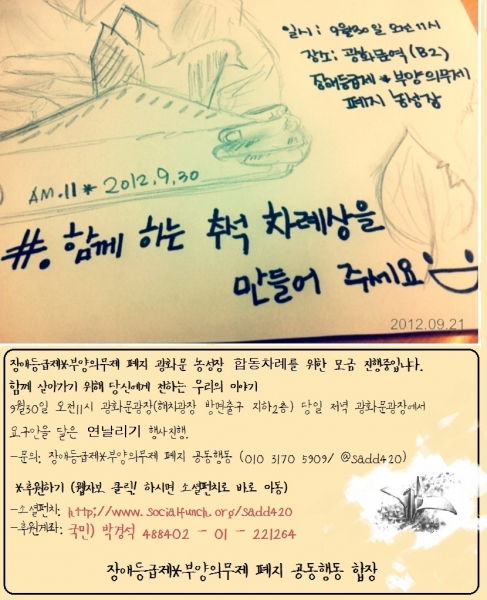 일시: 9월30일 오전11시
장소: 광화문역 (B2)
장애등급제 * 부양의무제
폐지 농성장
AM.11 * 2012.9.30
#. 함께 하는 추석 차례상을
만들어 주세요
2012.09.21
장애등급제*부양의무제 폐지 광화문 농성장 합동차례를 위한 모금 진행중입니다.
함께 살아가기 위해 당신에게 전하는 우리의 이야기
9월30일 오전11시 광화문광장(해치광장 방면출구 지하2층) 당일 저녁 광화문광장에서
요구안을 담은 연날리기 행사진행.
-문의: 장애등급제*부양의무제 폐지 공동행동 (010 3170 5909/ @sadd420)
*후원하기 (웹자보 클릭! 하시면 소셜펀치로 바로 이동)
-소셜펀치: http://www.socialfunch.org/sadd420
-후원계좌: 국민) 박경석 488402 - 01 - 221264
장애등급제*부양의무제 폐지 공동행동 합장